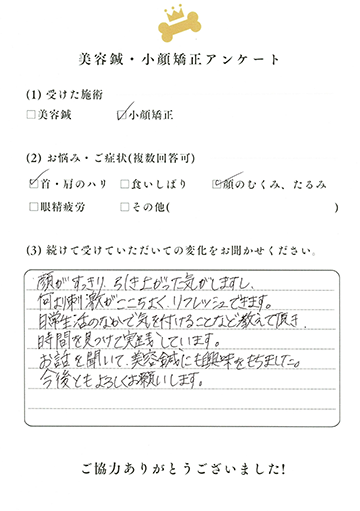 美容鍼・小顔矯正アンケート
(1) 受けた施術
□美容鍼 ☑小顔矯正
(2) お悩み・ご症状(複数回答可)
☑首・肩のハリ □食いしばり ☑顔のむくみ、たるみ
□眼精疲労 □その他( )
(3) 続けて受けていただいての変化をお聞かせください。
顔がすっきり、引き上がった気がしますし、
何より刺激がここちよく、リフレッシュできます。
日常生活のなかで気を付けることなど教えて頂き、
時間を見つけて実践しています。
お話を聞いて、美容鍼にも興味をもちました。
今後ともよろしくお願いします。
ご協力ありがとうございました!